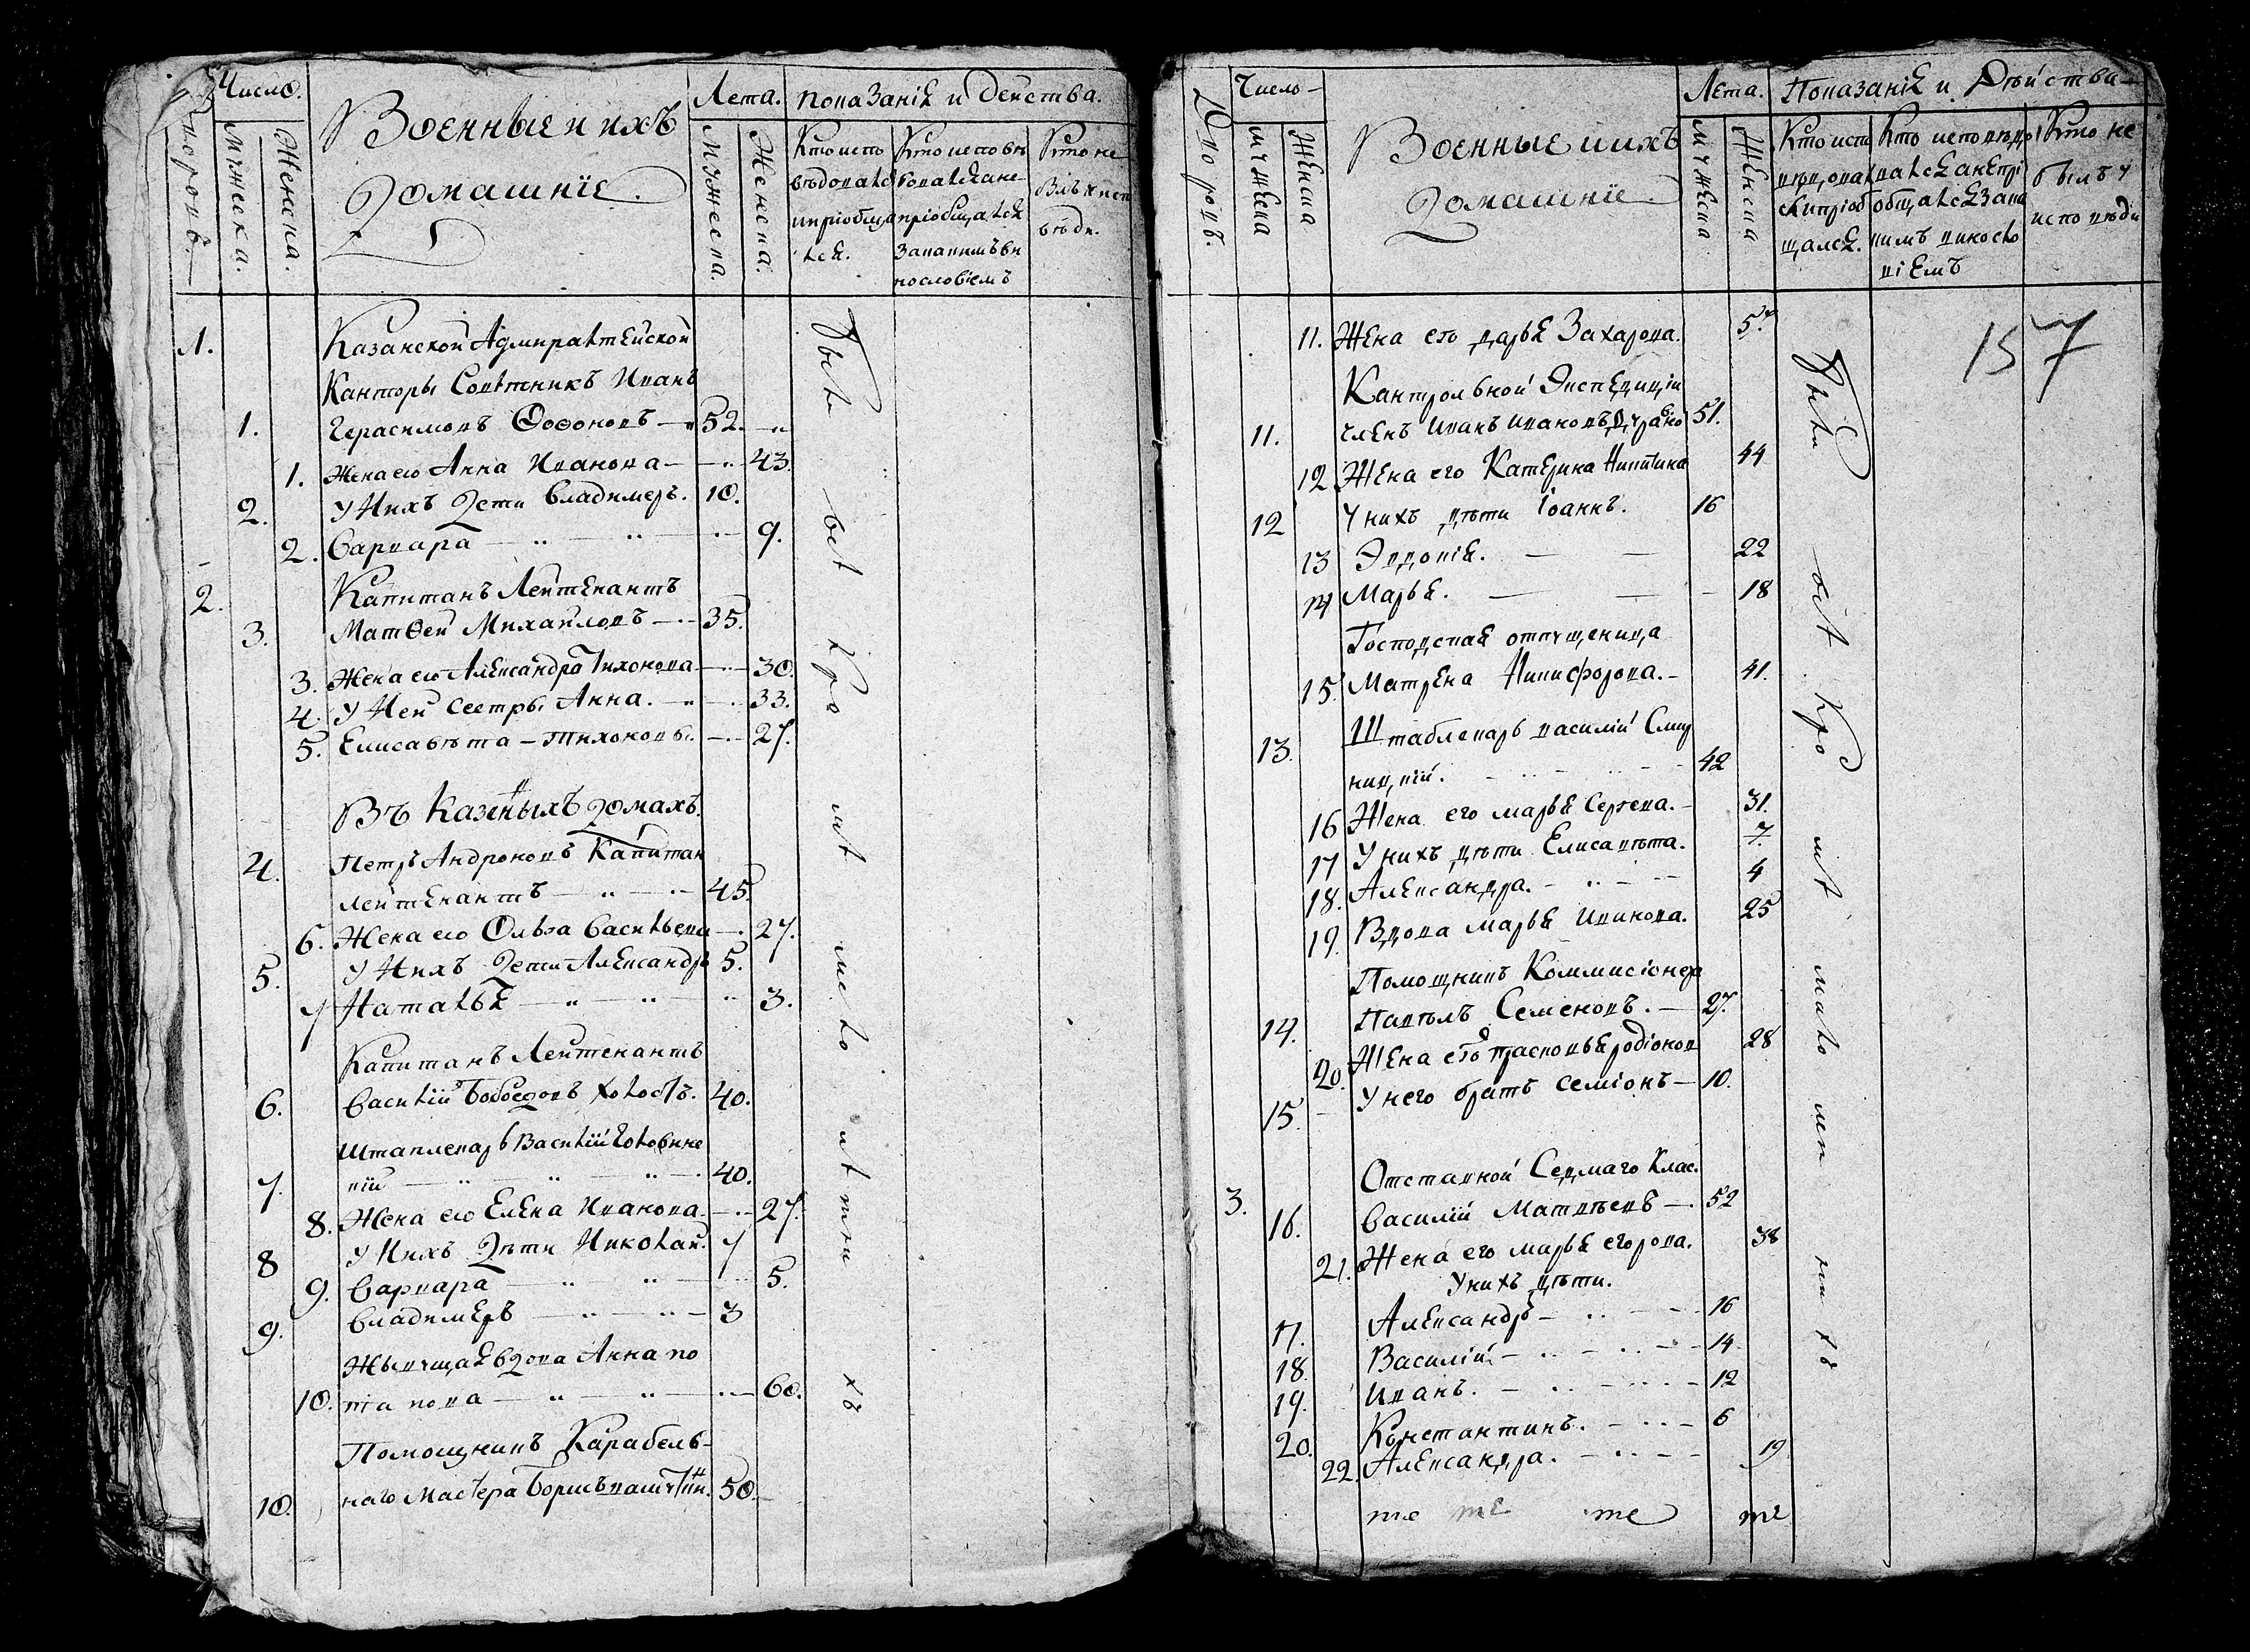 Число.
Дворовъ.
Мужеска.
Женска.
Военные и ихъ
Домашніе.
Лета.
Мужеска.
Женска.
показанія и действа.
Кто испо
ведовался
и приобща
лся.
Кто испове
довался а не
пріобщался
за каким ви
нословіемъ
Кто не
былъ у испо
веди.
1.
Казанской Адмиралтейской
Канторы Советникъ Иванъ
1. Герасимовъ Ѳоѳоновъ — 52.
1. Жена его Анна Иванова — 43.
2. У Нихъ Дети Владимеръ. 10.
2. Варвара — 9.
2. Капитанъ Лейтенантъ
3. Матѳей Михайловъ — 35.
3. Жена его Александра Тихонова — 30.
4. У Ней Сестры Анна. — 33.
5. Елисавета — Тихоновы. — 27.
Въ Казенныхъ домахъ.
4. Петръ Андроновъ Капитан
лейтенантъ — 45.
6. Жена его Ольга Васильева — 27.
5. У Нихъ Дети Александръ 5.
7 Наталья — 3.
Капитанъ Лейтенантъ
6. Василій Бобоедовъ холостъ. 40.
Штаплекарь Василій Головинс
7. кій — 40.
8. Жена его Елена Иванова. — 27.
8 У Нихъ Дѣти Николай. 7
9. Варвара — 5.
9. Владимеръ — 3
Живущая вдова Анна По
10. тапова — 60.
Помощникъ Карабель-
10. наго Мастера Борисъ 50.
Число —
Дворовъ.
Мужеска
Женска
Военные и ихъ
Домашніе.
Лета.
Мужеска
Женска
Показанія и Дѣйства —
Кто испо
вѣдовал
ся и пріоб
щался.
Кто исповѣдо
вался а не прі
общался за ка
кимъ виносло
віемъ
Кто не
былъ у
исповѣди
157
11. Жена его дарья Захарова. 57
Кантрольной Экспедиціи
11. членъ Иванъ Ивановъ 51.
12 Жена его Катерина Никитина 44
12 У нихъ дѣти Іоаннъ. 16
13 Эвдокія. — 22
14 Марья. — 18
Господская отпущеница
15. Матрена Никифорова. — 41.
13. Штаблекарь Василій Смир
ницкій. — 42
16 Жена его марья Сергева. — 31.
17 У нихъ дѣти Елисавѣта. 7.
18. Александра. — 4
19. Вдова марья Иванова. 25
Помощникъ Коммисіонера
14. Павелъ Семеновъ. — 27.
20. Жена его Прасковья родіонов 28
15. У него братъ Семіонъ — 10.
Отставной Седмаго Клас.
3. 16. Василій Матвѣевъ — 52
21. Жена его марья егорова. 38
У нихъ дѣти.
17. Александръ — 16
18. Василій — 14
19. Иванъ. — 12
20. Константинъ. — 6
22. Александра. — 19
те те те те